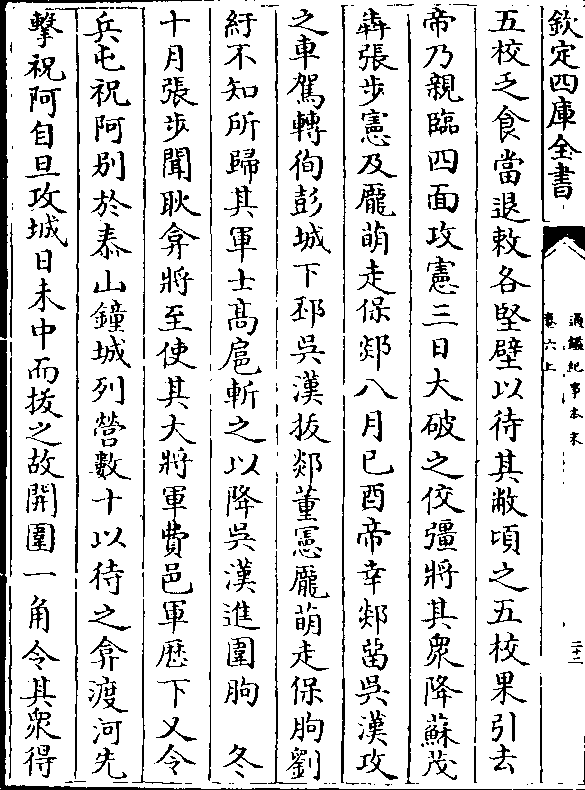 欽定四庫全書
通鑑紀事本末
卷六上
二十二
五校乏食當退敕各堅壁以待其敝頃之五校果引去
帝乃親臨四面攻憲三日大破之佼彊將其衆降蘇茂
犇張步憲及龎萌走保郯八月己酉帝幸郯留吳漢攻
之車駕轉徇彭城下邳吳漢拔郯董憲龎萌走保朐劉
紆不知所歸其軍士髙扈斬之以降吳漢進圍朐　冬
十月張步聞耿弇將至使其大將軍費邑軍厯下又令
兵屯祝阿别於泰山鐘城列營數十以待之弇渡河先
擊祝阿自旦攻城日未中而拔之故開圍一角令其衆得